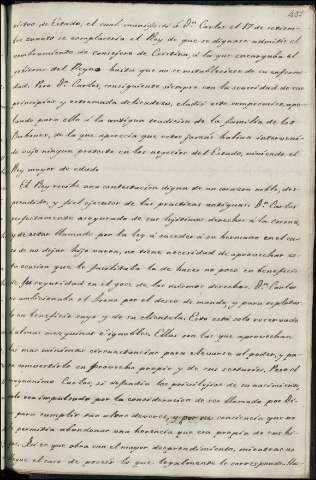 487
nistro de Estado, el cual manifestó á Dn. Carlos el 17 de setiem-
bre cuanto se complacería el Rey de que se dignase admitir el
nombramiento de consejero de Cristina, á la que encargaba el
gobierno del Reyno hasta que se restableciese de su enferme-
dad. Pero Dn. Carlos, consiguiente siempre con la severidad de sus
principios y estremada delicadeza, eludió este compromiso, ape-
lando para ello á la antigua tradicion de la familia de los
Borbones, de la que aparecía que estos jamás habian intervenido
bajo ningun pretesto en los negocios del Estado, viviendo el
Rey mayor de edad.
El Rey recibe una contestacion digna de un corazon noble, des-
prendido, y fiel ejecutor de las practicas antiguas. Dn. Carlos
suficientemente asegurado de sus legitimos derechos á la corona,
y de estar llamado por la ley á suceder á su hermano en el ca-
so de no dejar hijo varon, no tiene necesidad de aprovechar es-
ta ocasion que le facilitaba la de hacer no poco en beneficio
de su seguridad en el goce de los mismos derechos. Dn. Carlos
no ambicionaba el trono por el deseo de mando, y para esplotar-
lo en beneficio suyo y de su clientela. Esto está solo reservado
á almas mezquinas é ignobles. Ellas son las que aprovechan
las mas minimas circunstancias para elevarse al poder, y pa-
ra convertirlo en provecho propio y de sus sectarios. Pero el
magnanimo Carlos, si defendia los privilegios de su nacimiento,
solo era impulsado por la consideracion de ser llamado por Di-
para cumplir tan altos deveres, y por su conciencia que no
le permitia abandonar una herencia que era propia de sus hi-
jos. Asi es que obra con el mayor desprendimiento, mientras no
llegue el caso de poseér lo que legalmente le corresponde. Ha-